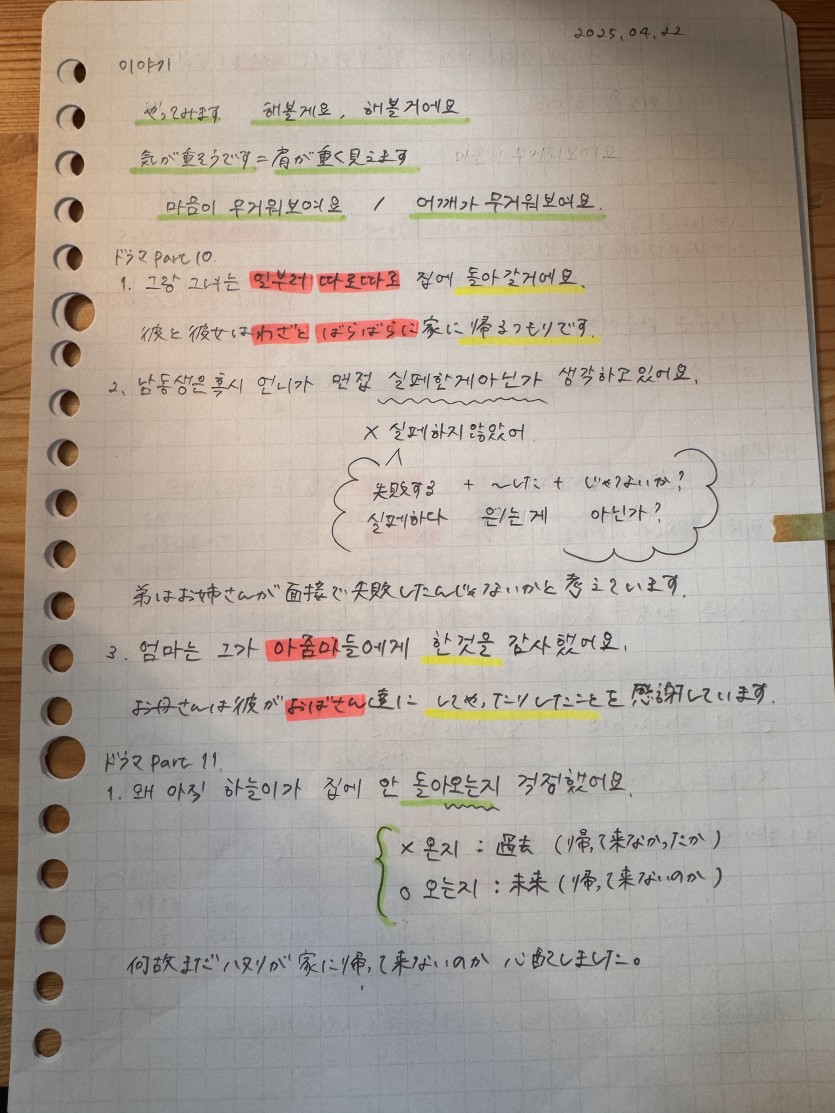 2025.04.22
이야기
やってみます 해볼게요, 해볼거에요
気が重そうです=肩が重く見えます
마음이 무거워보여요 / 어깨가 무거워보여요.
ドラマ Part 10.
1. 그랑 그녀는 일부러 따로따로 집에 돌아갈거에요.
彼と彼女はわざとばらばらに家に帰るつもりです.
2. 남동생은 혹시 언니가 면접 실페한게아닌가 생각하고있어요.
× 실페하지 않았어
失敗する + ~した + じゃないか?
실페하다 은/는게 아닌가?
弟はお姉さんが面接で失敗したんじゃないかと考えています.
3. 엄마는 그가 아줌마들에게 한것을 감사했어요.
お母さんは彼がおばさん達にしてやったりしたことを感謝しています.
ドラマ Part 11.
1. 왜 아직 하늘이가 집에 안 돌아오는지 걱정했어요.
× 온지 : 過去 (帰って来なかったか)
○ 오는지 : 未来 (帰って来ないのか)
何故まだハヌリが家に帰って来ないのか心配しました。